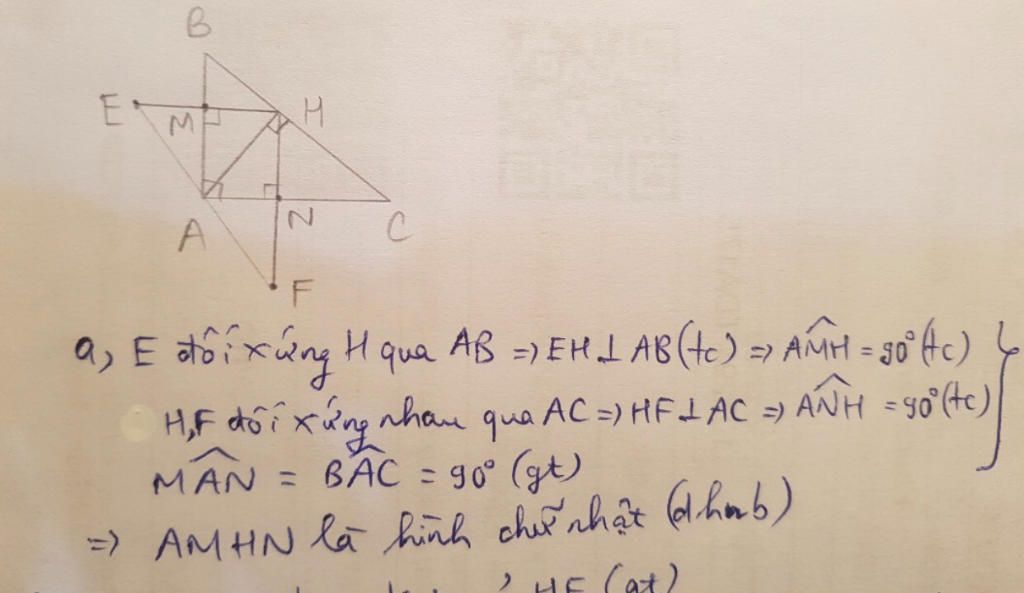 B
E
M
H
A
N
C
F
a, E đối xứng H qua AB => EH ⊥ AB (tc) => AM̂H = 90° (tc)
H,F đối xứng nhau qua AC => HF ⊥ AC => AN̂H = 90° (tc)
MÂN = BÂC = 90° (gt)
=> AMHN là hình chữ nhật (dhnb)
HF (gt)